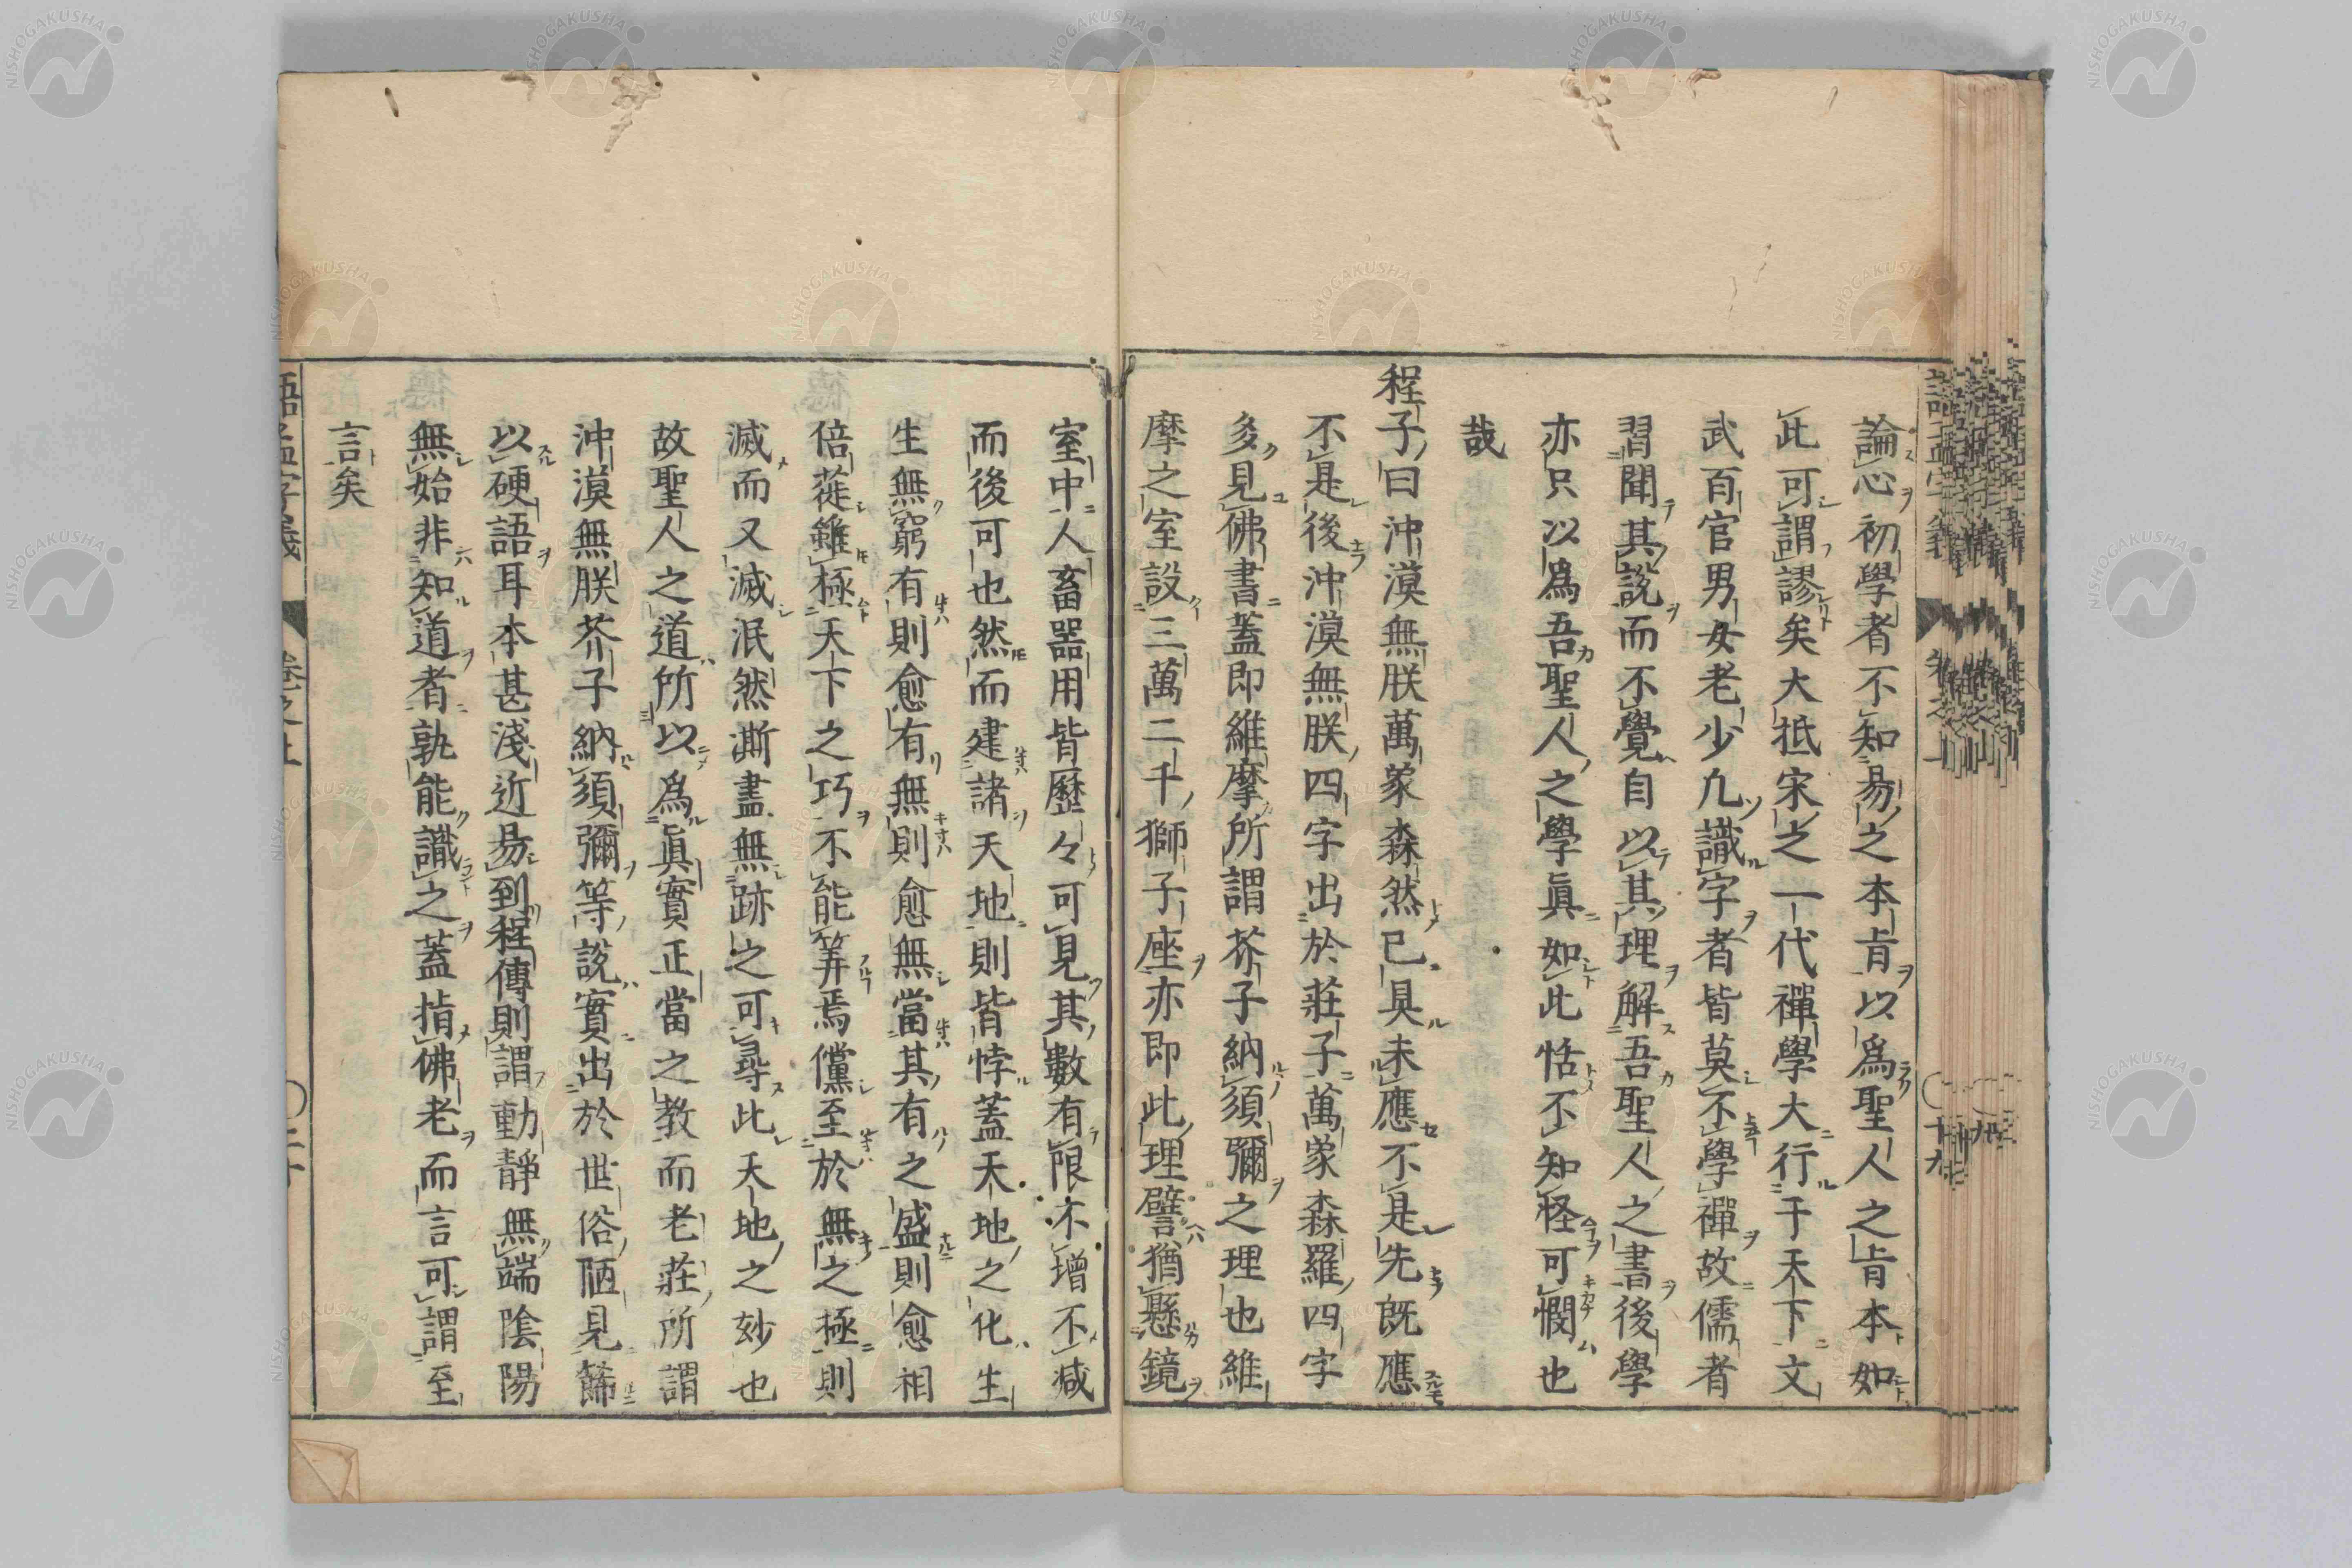 論心初學者不知易之本旨以爲聖人之旨本如
此可謂謬矣大抵宋之一代禪學大行于天下文
武百官男女老少凢識字者皆莫不學禪故儒者
習聞其說而不覺自以其理解吾聖人之書後學
亦只以爲吾聖人之學眞如此恬不知怪可憫也
哉
程子曰沖漠無朕萬象森然已具未應不是先既應
不是後沖漠無朕四字出於莊子萬象森羅四字
多見佛書蓋即維摩所謂芥子納須彌之理也維
摩之室設三萬二千獅子座亦即此理譬猶懸鏡
室中人畜器用皆歷々可見其數有限不增不減
而後可也然而建諸天地則皆悖蓋天地之化生
生無窮有則愈有無則愈無當其有之盛則愈相
倍蓰雖極天下之巧不能筭焉儻至於無之極則
滅而又滅泯然澌盡無跡之可尋此天地之妙也
故聖人之道所以爲眞實正當之教而老莊所謂
沖漠無朕芥子納須彌等說實出於世俗陋見餙
以硬語耳本甚淺近易到程傳則謂動靜無端陰陽
無始非知道者孰能識之蓋指佛老而言可謂至
言矣
語孟字義 卷之上 〇二十
NISHOGAKUSHA